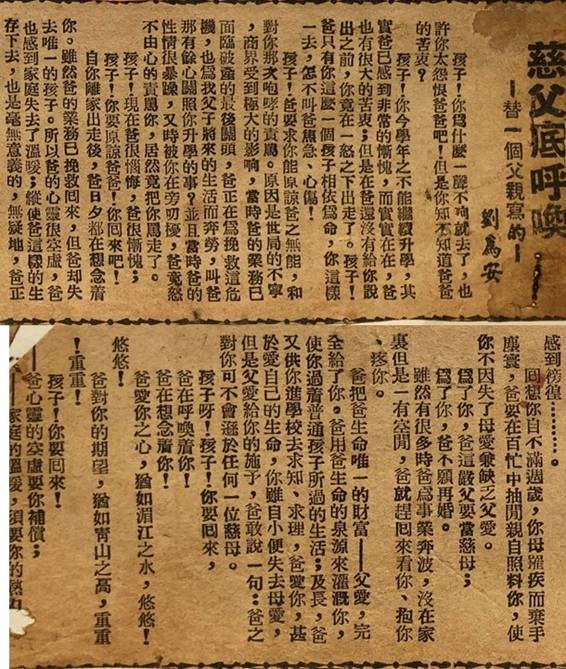 慈父底呼喚
—替一個父親寫的—
劉爲安
孩子!你爲什麼一聲不响就去了,也
許你太怨恨爸爸吧!但是你知不知道爸爸
的苦衷?
孩子!你今學年之不能繼續升學,其
實爸已感到非常的慚愧,而實實在在,爸
也有很大的苦衷;但是在爸還沒有給你說
出之前,你竟在一怒之下出走了。孩子!
爸只有你這麼一個孩子相依爲命,你這樣
一去,怎不叫爸焦急、心傷!
孩子!爸要求你能原諒爸之無能,和
對你那次咆哮的責罵。原因是世局的不寧
,商界受到極大的影响,當時爸的業務已
面臨破產的最後關頭,爸正在爲挽救這危
機,也爲我父子將來的生活而奔勞,叫爸
那有餘心關照你升學的事?並且當時爸的
性情很暴躁,又時被你在旁叨擾,爸竟怒
不由心的責罵你,居然竟把你罵走了。
孩子!現在爸很懊悔,爸很慚愧;
孩子!你要原諒爸爸!你回來吧!
自你離家出走後,爸日夕都在想念着
你。雖然爸的業務已挽救回來,但爸却失
去唯一的孩子。所以爸的心靈很空虛,爸
也感到家庭失去了溫暖;縱使爸這樣的生
存下去,也是毫無意義的,無疑地,爸正
感到徬徨………。
回想你自不滿週歲,你母罹疾而棄手
塵寰,爸要在百忙中抽閒親自照料你,使
你不因失了母愛兼缺乏父愛。
爲了你,爸這嚴父要當慈母;
爲了你,爸不願再婚。
雖然有很多時爸爲事業奔波,沒在家
裏但是一有空閒,爸就趕回來看你、抱你
、疼你。
爸把爸生命唯一的財富——父愛,完
全給了你。爸用爸生命的泉源來灌溉你,
使你過着普通孩子所過的生活;及長,爸
又供你進學校去求知、求理,爸愛你,甚
於愛自己的生命,你雖自小便失去母愛,
但是父愛給你的施予,爸敢說一句:爸之
對你可不會遜於任何一位慈母。
孩子呀!孩子!你要回來,
爸在呼喚着你!
爸在想念着你!
爸愛你之心,猶如湄江之水,悠悠!
悠悠!
爸對你的期望,猶如靑山之高,重重
!重重!
孩子!你要回來!
——爸心靈的空虛要你補償;
家庭的溫暖,須要你的熱力